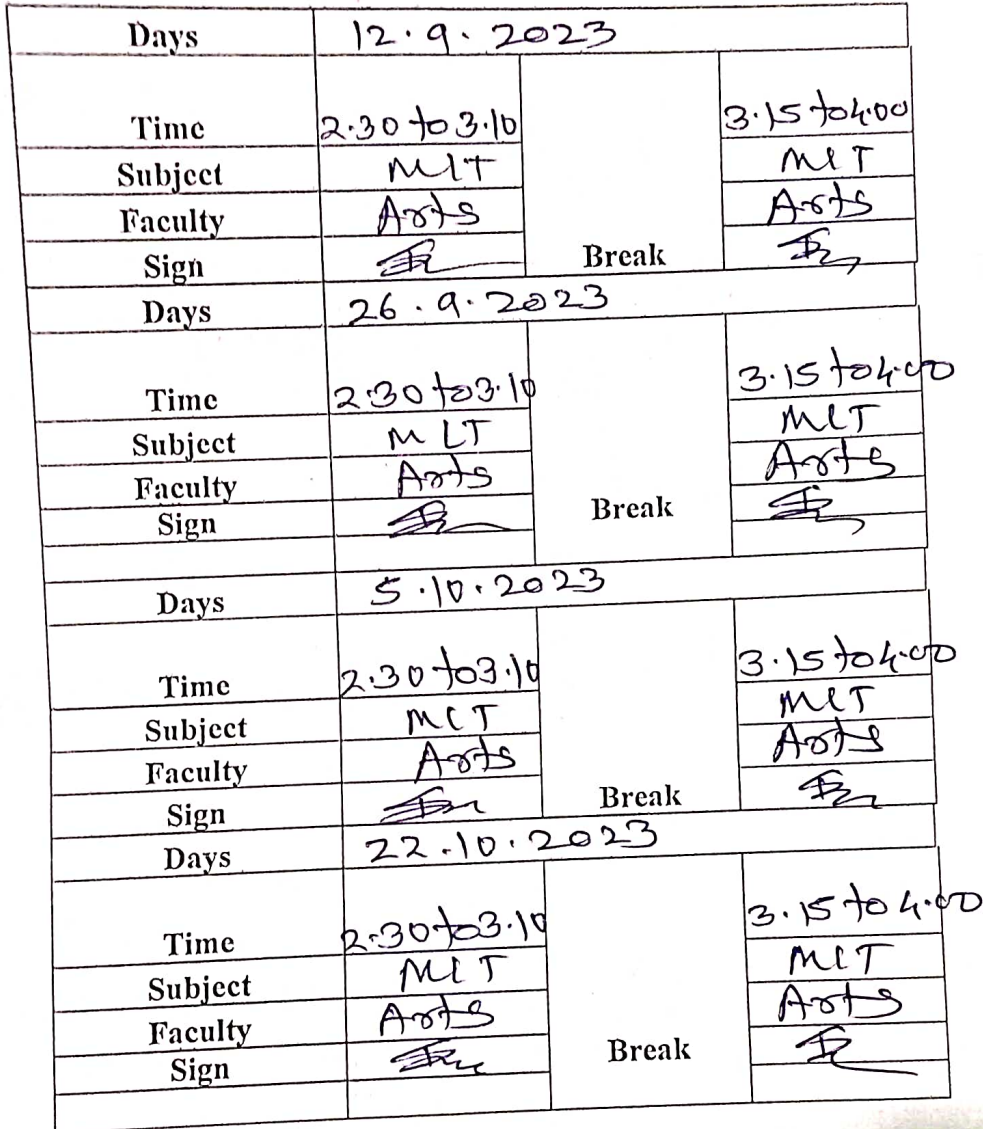 Days 12.9.2023
Time 2.30 to 3.10 3.15 to 4.00
Subject MIT MIT
Faculty Arts Arts
Sign Break
Days 26.9.2023
Time 2.30 to 3.10 3.15 to 4.00
Subject MIT MIT
Faculty Arts Arts
Sign Break
Days 5.10.2023
Time 2.30 to 3.10 3.15 to 4.00
Subject MIT MIT
Faculty Arts Arts
Sign Break
Days 22.10.2023
Time 2.30 to 3.10 3.15 to 4.00
Subject MIT MIT
Faculty Arts Arts
Sign Break